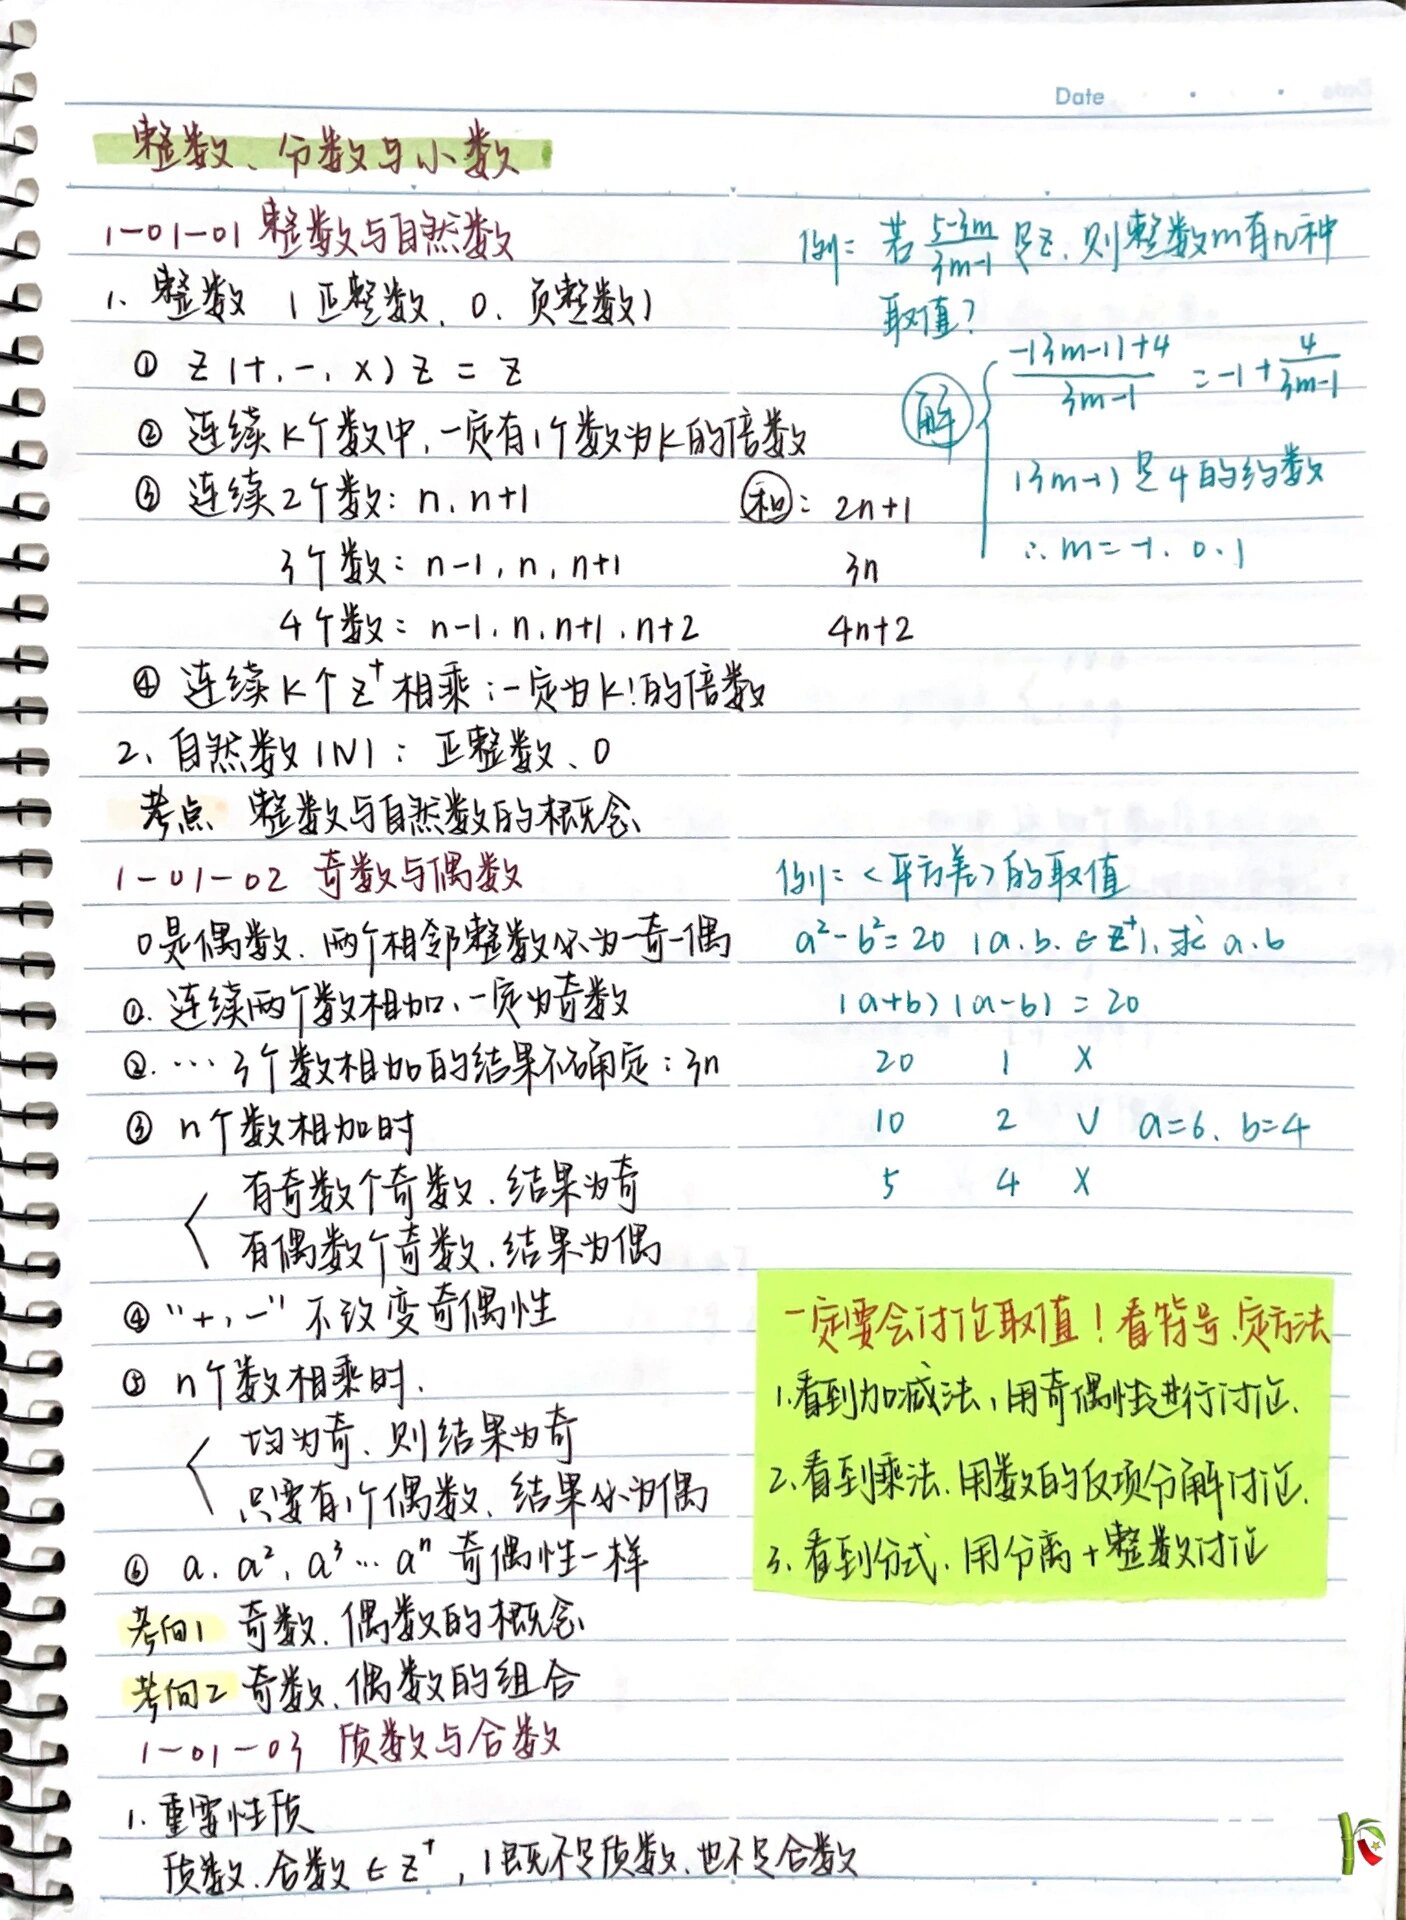 Date
整数、分数与小数
1-01-01 整数与自然数
1、整数 (正整数、0、负整数)
① Z (+、-、×) Z = Z
② 连续K个数中,一定有1个数为K的倍数
③ 连续2个数: n、n+1 和: 2n+1
3个数: n-1、n、n+1 3n
4个数: n-1、n、n+1、n+2 4n+2
④ 连续K个Z⁺相乘:一定为K!的倍数
2、自然数(N): 正整数、0
考点 整数与自然数的概念
例: 若 (5-3m)/(3m-1) 是Z,则整数m有几种
取值?
解 (-(3m-1)+4)/(3m-1) = -1 + 4/(3m-1)
(3m-1)是4的约数
∴ m=-1、0、1
1-01-02 奇数与偶数
0是偶数、两个相邻整数必为一奇一偶
①、连续两个数相加、一定为奇数
②、… 3个数相加的结果不确定: 3n
③ n个数相加时
有奇数个奇数、结果为奇
有偶数个奇数、结果为偶
④ “+、-” 不改变奇偶性
⑤ n个数相乘时、
均为奇、则结果为奇
只要有1个偶数、结果必为偶
⑥ a、a²、a³…aⁿ 奇偶性一样
考向1 奇数、偶数的概念
考向2 奇数、偶数的组合
例: <平方差>的取值
a²-b²=20 (a、b、∈Z⁺)、求a、b
(a+b)(a-b) = 20
20 1 ×
10 2 √ a=6、b=4
5 4 ×
一定要会讨论取值!看符号、定方法
1、看到加减法、用奇偶性进行讨论、
2、看到乘法、用数的因项分解讨论、
3、看到分式、用分离+整数讨论
1-01-03 质数与合数
1、重要性质
质数、合数∈Z⁺,1既不是质数、也不是合数